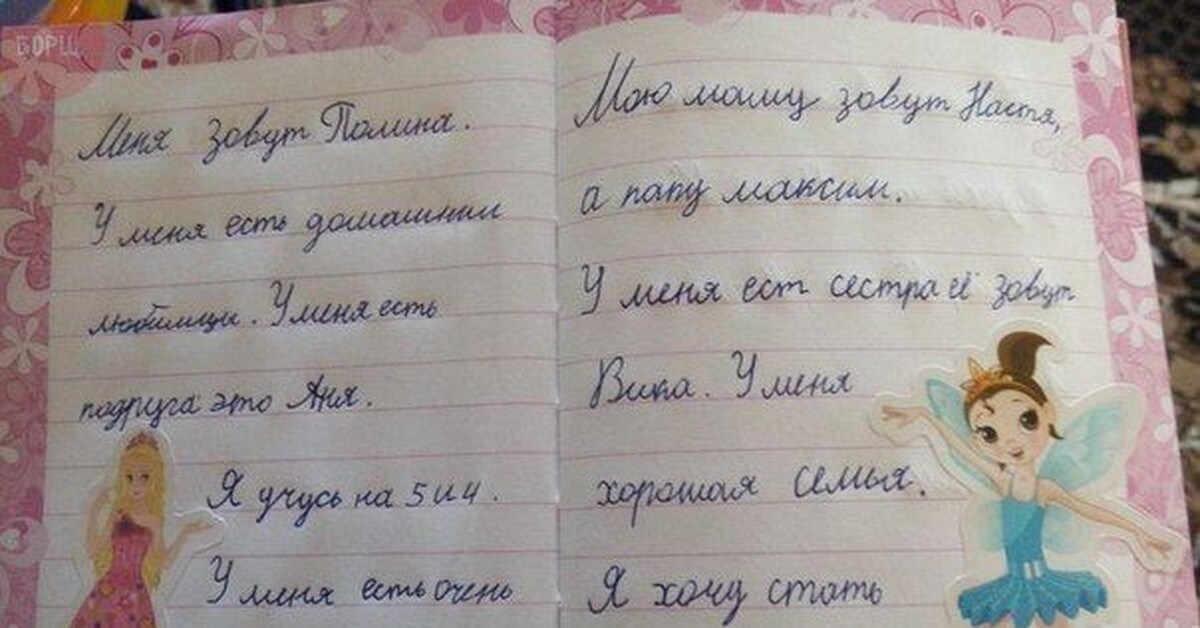 БОРЩ
Меня зовут Полина.
У меня есть домашнии
любимцы. У меня есть
подруга это Аня.
Я учусь на 5 и 4.
У меня есть очень
Мою маму зовут Настя,
а папу максим.
У меня ест сестра её зовут
Вика. У меня
хорошая семья.
Я хочу стать